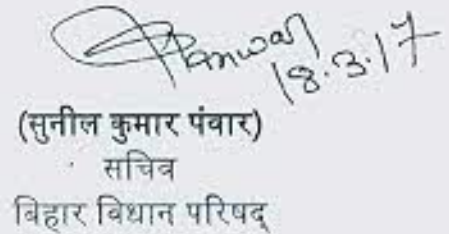 Panwar
18.3.17
(सुनील कुमार पंवार)
सचिव
बिहार विधान परिषद्